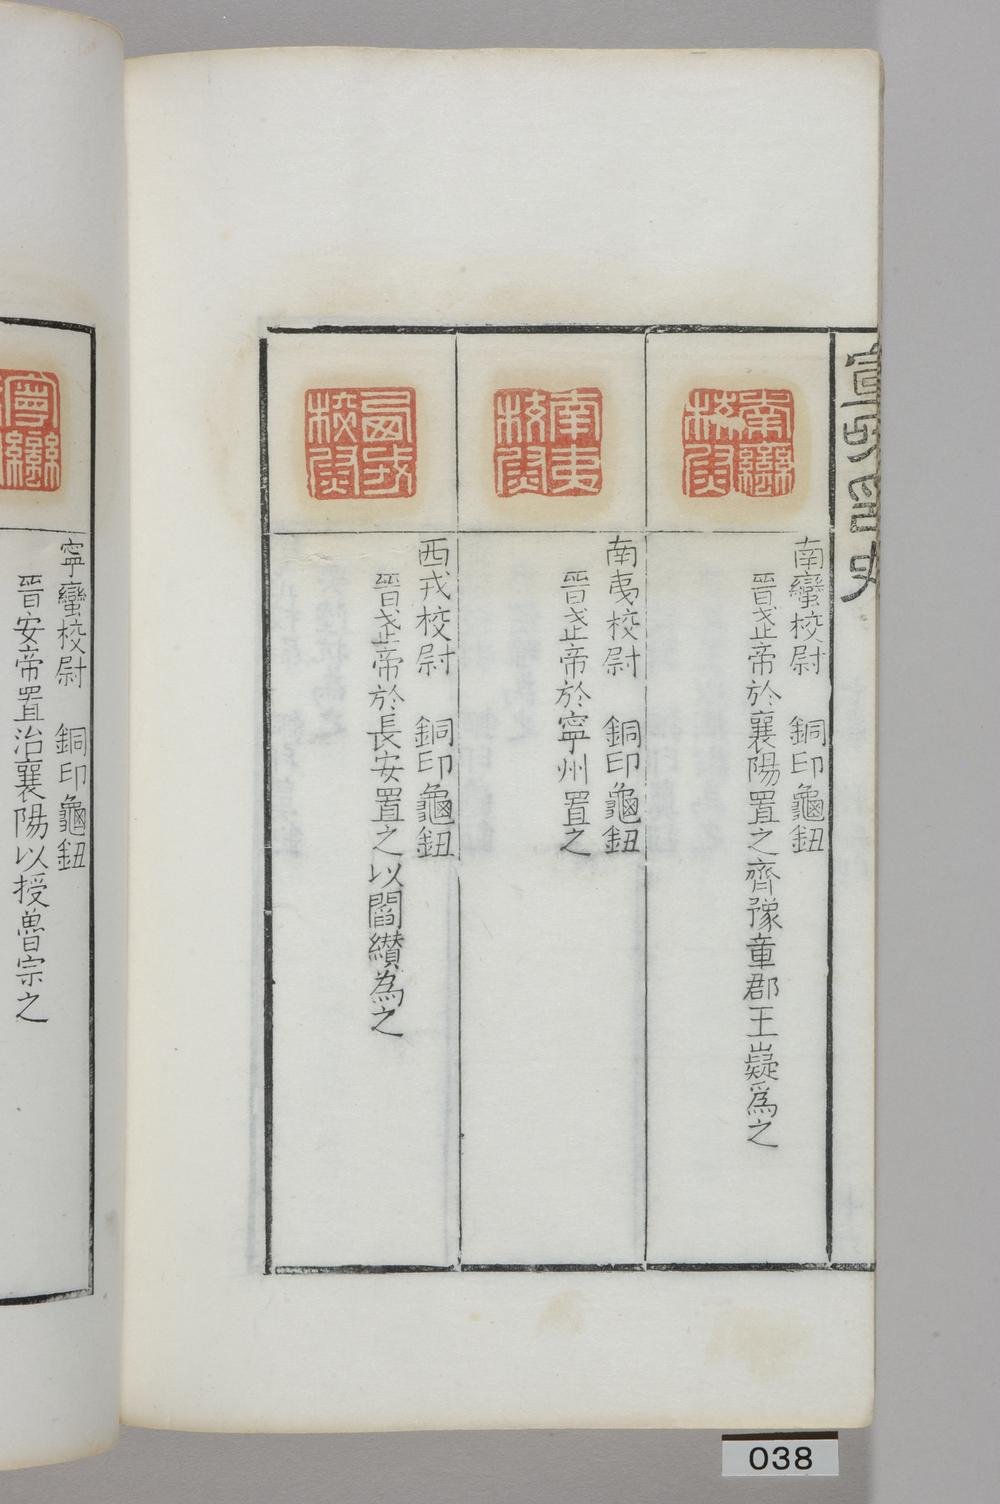 宣和印史
南蠻校尉
南蠻校尉　銅印龜鈕
晉武帝於襄陽置之齊豫章郡王嶷爲之
南夷校尉
南夷校尉　銅印龜鈕
晉武帝於寧州置之
西戎校尉
西戎校尉　銅印龜鈕
晉武帝於長安置之以閻纘為之
寧蠻
寧蠻校尉　銅印龜鈕
晉安帝置治襄陽以授魯宗之
038